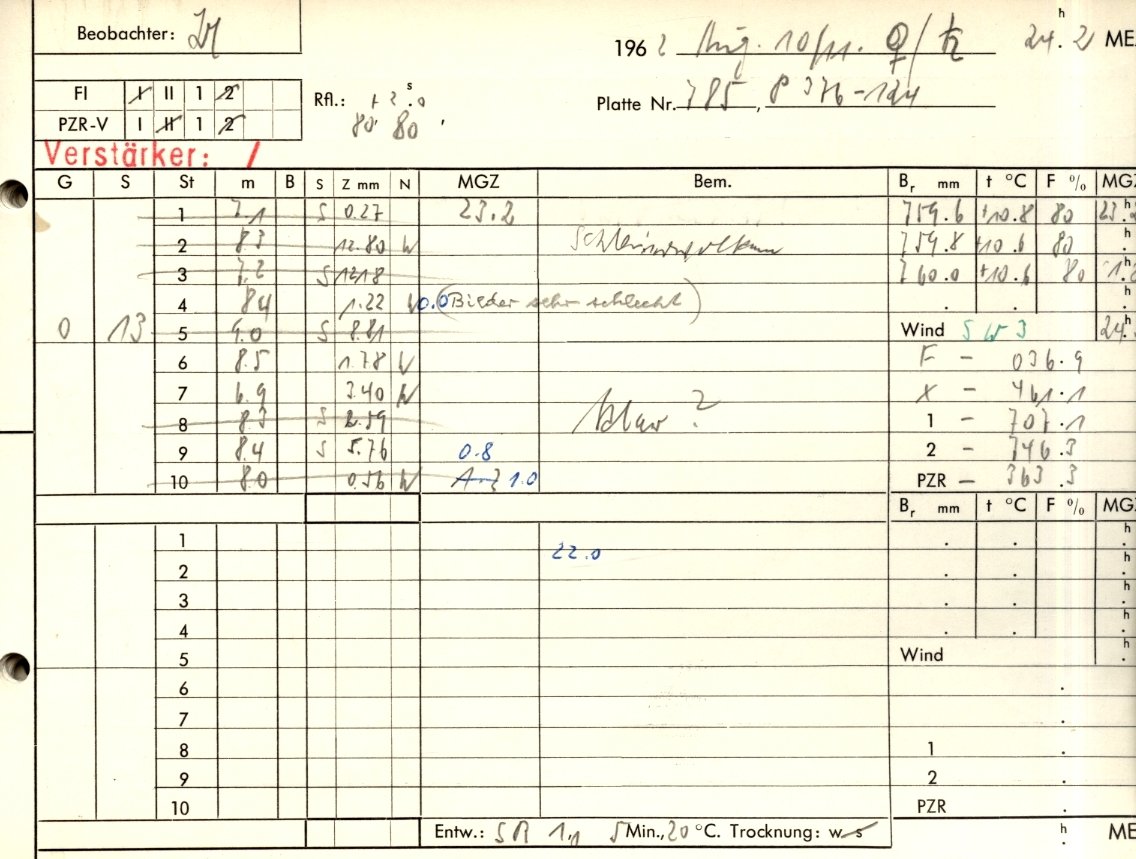 Beobachter:
h
196 2 Aug. 10/11. ♀/♄ 24.2 ME
FI I II 1 2
Rfl.: + 2.0 s
Platte Nr. 785, P 376-124
PZR-V I II 1 2
80 80
Verstärker: /
G S St m B S Z mm N MGZ Bem. Br mm t °C F % MGZ
1 7.1 S 0.27 23.2 759.6 +10.8 80 23.
2 8.3 12.80 W 759.8 +10.6 80
3 7.2 S 12.18 760.0 +10.6 80 1.8 h
4 8.4 1.22 W 0.0 (Bilder sehr schlecht) . . h
0 13 5 9.0 S 8.81 Wind SW 3 24. h
6 8.5 1.78 W F - 036.9
7 6.9 3.40 W X - 461.1
8 8.3 S 2.59 blau ? 1 - 707.1
9 8.4 S 5.76 0.8 2 - 746.3
10 8.0 0.56 W 1.0 PZR - 363.3
Br mm t °C F % MGZ
1 . . h
22.0
2 . . h
3 . . h
4 . . h
5 Wind h
6 .
7 .
8 1 .
9 2 .
10 PZR .
Entw.: 5 Min., 20 °C. Trocknung: w s h ME